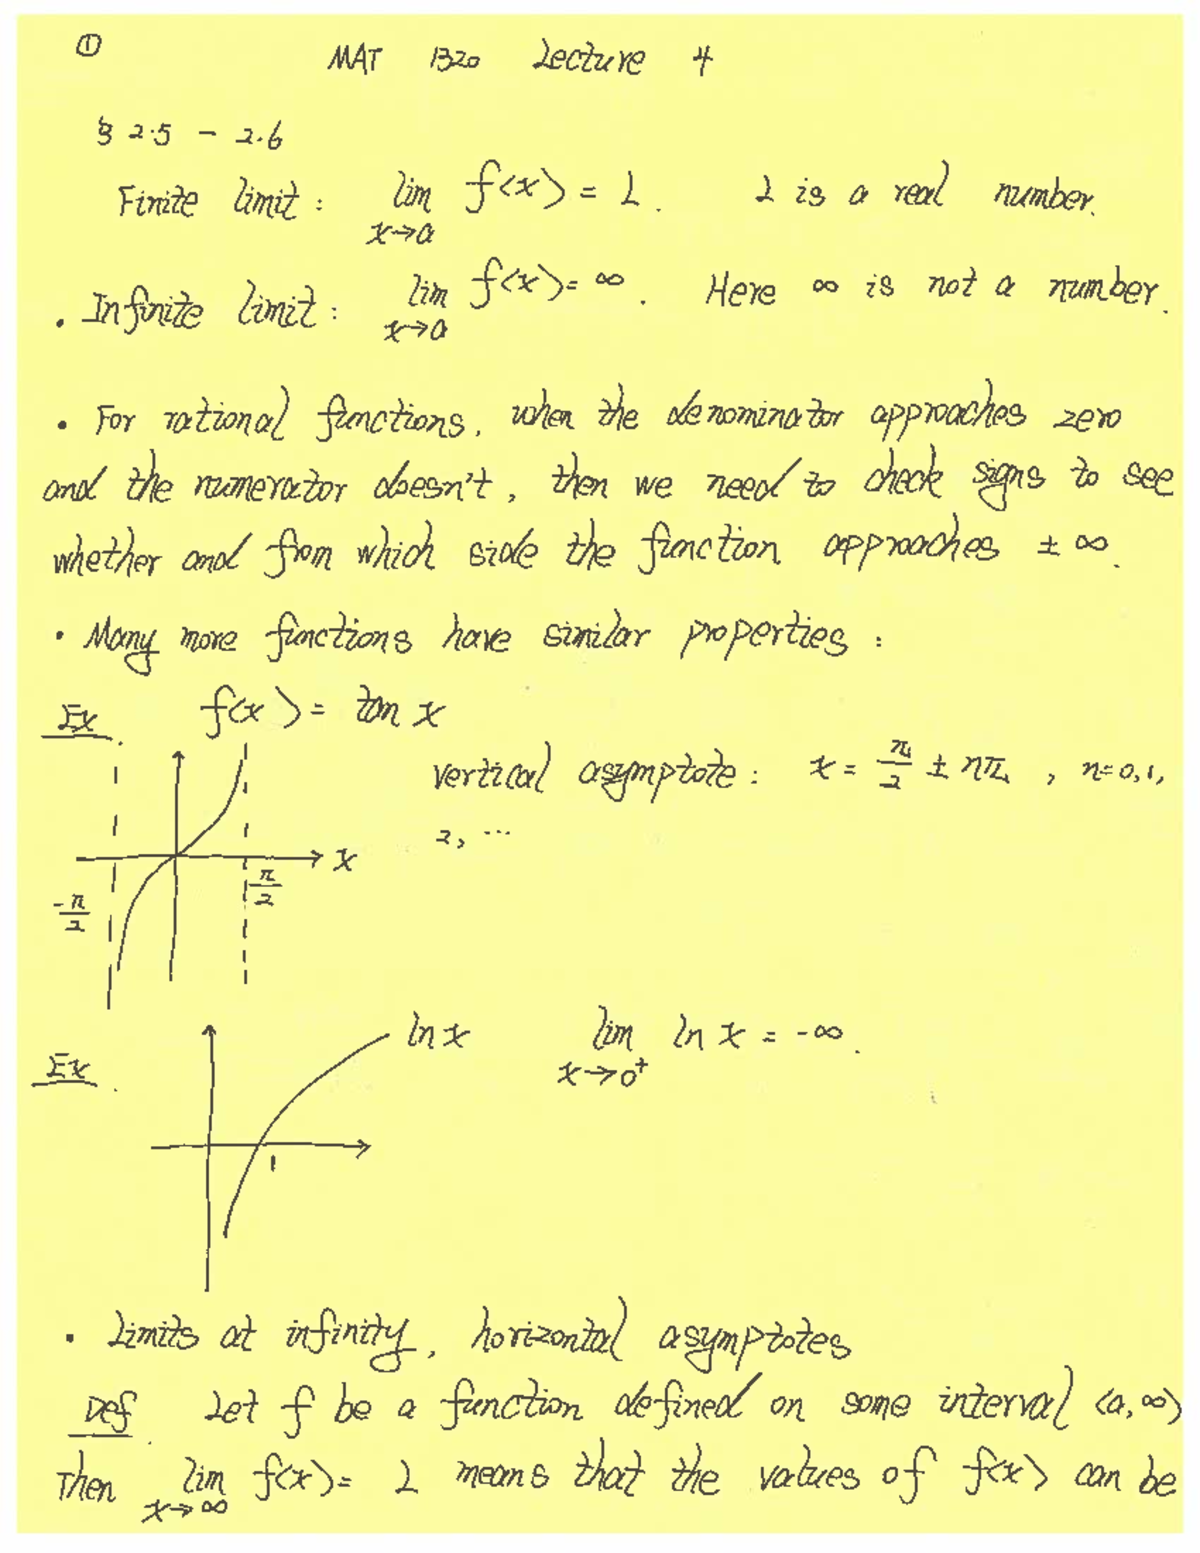 ①
MAT 1320 Lecture 4
§ 2.5 - 2.6
Finite limit: lim f(x) = L. L is a real number.
x→a
· Infinite limit: lim f(x) = ∞. Here ∞ is not a number.
x→a
· For rational functions, when the denominator approaches zero
and the numerator doesn't, then we need to check signs to see
whether and from which side the function approaches ± ∞.
· Many more functions have similar properties:
Ex. f(x) = tan x
vertical asymptote: x = π/2 ± nπ, n=0,1,
2, ...
x
-π/2
π/2
Ex. ln x lim ln x = -∞.
x→0⁺
1
· Limits at infinity, horizontal asymptotes
Def. Let f be a function defined on some interval (a,∞)
Then lim f(x) = L means that the values of f(x) can be
x→∞